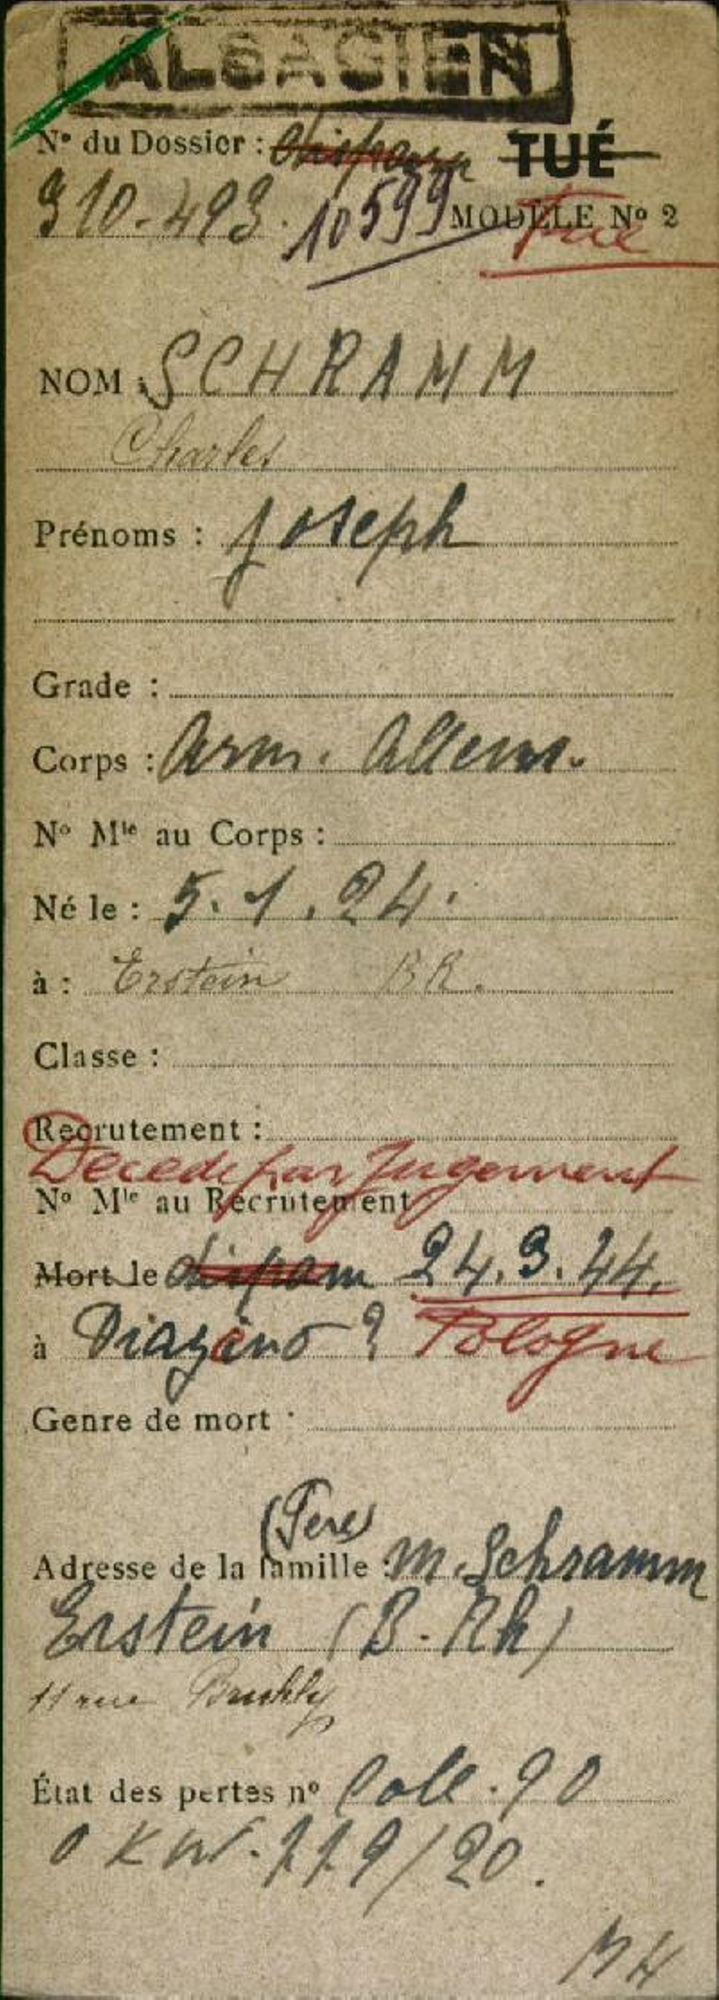 ALSACIEN
N° du Dossier : disparu TUÉ
310-493. 10599 MODÈLE N° 2
Tué
NOM : SCHRAMM
Charles
Prénoms : Joseph
Grade :
Corps : Arm. Allem.
N° Mle au Corps :
Né le : 5.1.24.
à : Erstein B.R.
Classe :
Recrutement :
Décédé par Jugement
N° Mle au Recrutement
Mort le disparu 24.3.44.
à Diazéno ? Pologne
Genre de mort :
(Père)
Adresse de la famille : M. Schramm
Erstein (B-Rh)
11 rue
État des pertes n° Coll. 90
O K W. 119/20.